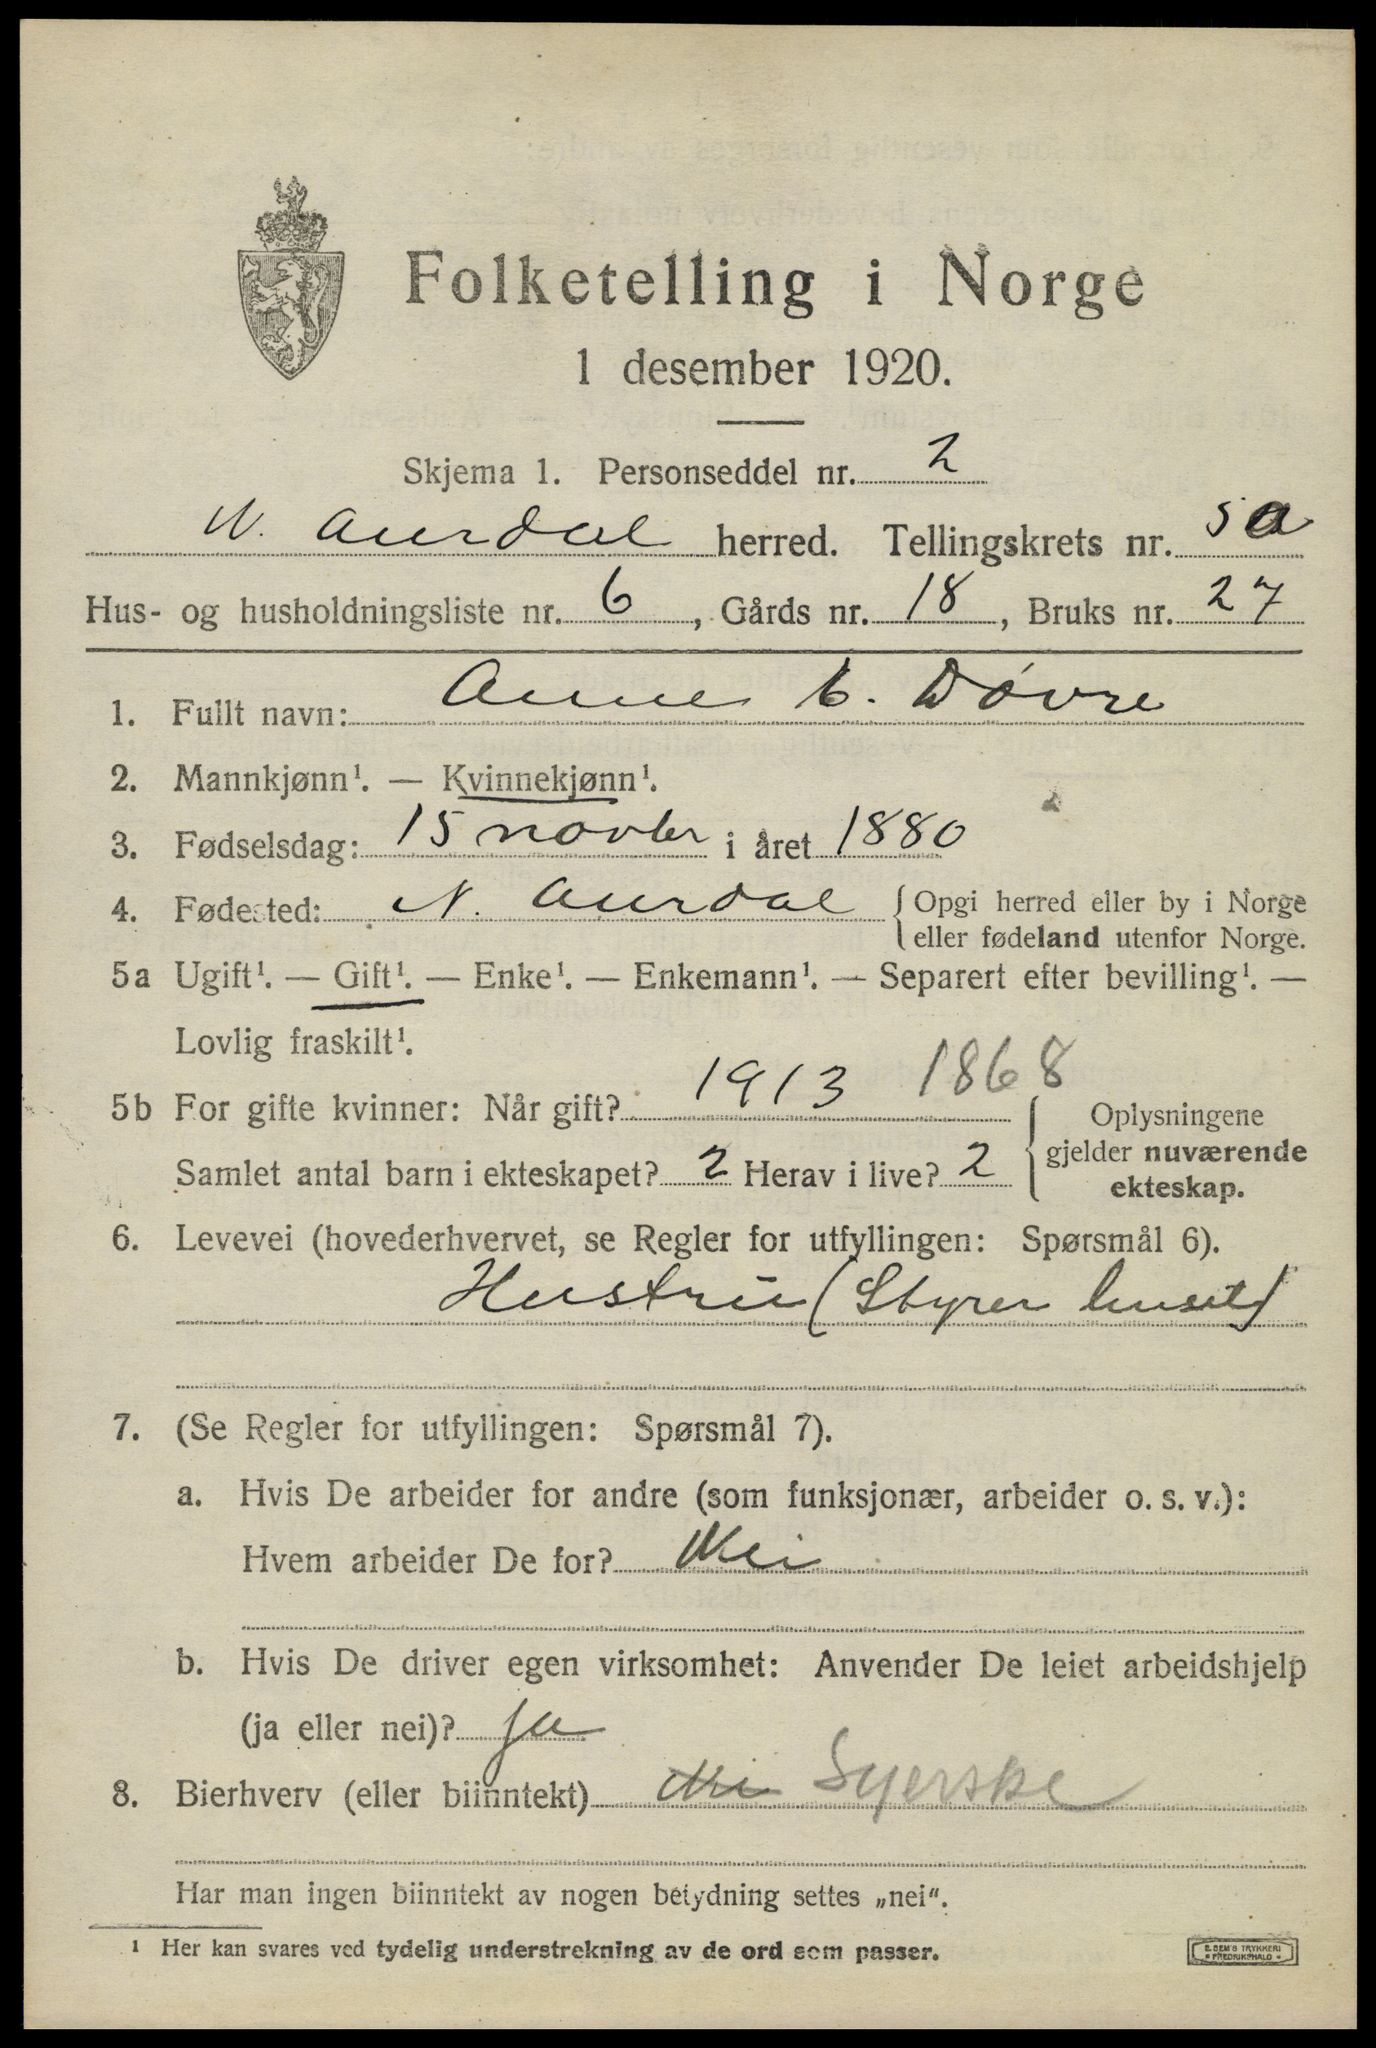 Folketelling i Norge
1 desember 1920.
Skjema 1. Personseddel nr. 2
N. Aurdal herred. Tellingskrets nr. 5a
Hus- og husholdningsliste nr. 6, Gårds nr. 18, Bruks nr. 27
1. Fullt navn: Anne C. Døvre
2. Mannkjønn¹. — Kvinnekjønn¹.
3. Fødselsdag: 15 novbr i året 1880
4. Fødested: N. Aurdal { Opgi herred eller by i Norge
eller fødeland utenfor Norge.
5a Ugift¹. — Gift¹. — Enke¹. — Enkemann¹. — Separert efter bevilling¹. —
Lovlig fraskilt¹.
5b For gifte kvinner: Når gift? 1913 1868
Samlet antal barn i ekteskapet? 2 Herav i live? 2
Oplysningene
gjelder nuværende
ekteskap.
6. Levevei (hovederhvervet, se Regler for utfyllingen: Spørsmål 6).
Hustru (Styrer huset)
7. (Se Regler for utfyllingen: Spørsmål 7).
a. Hvis De arbeider for andre (som funksjonær, arbeider o. s. v.):
Hvem arbeider De for? Nei
b. Hvis De driver egen virksomhet: Anvender De leiet arbeidshjelp
(ja eller nei)? ja
8. Bierhverv (eller biinntekt) Nei Syerske
Har man ingen biinntekt av nogen betydning settes „nei".
¹ Her kan svares ved tydelig understrekning av de ord som passer.
E. SEM'S TRYKKERI
* FREDRIKSHALD *